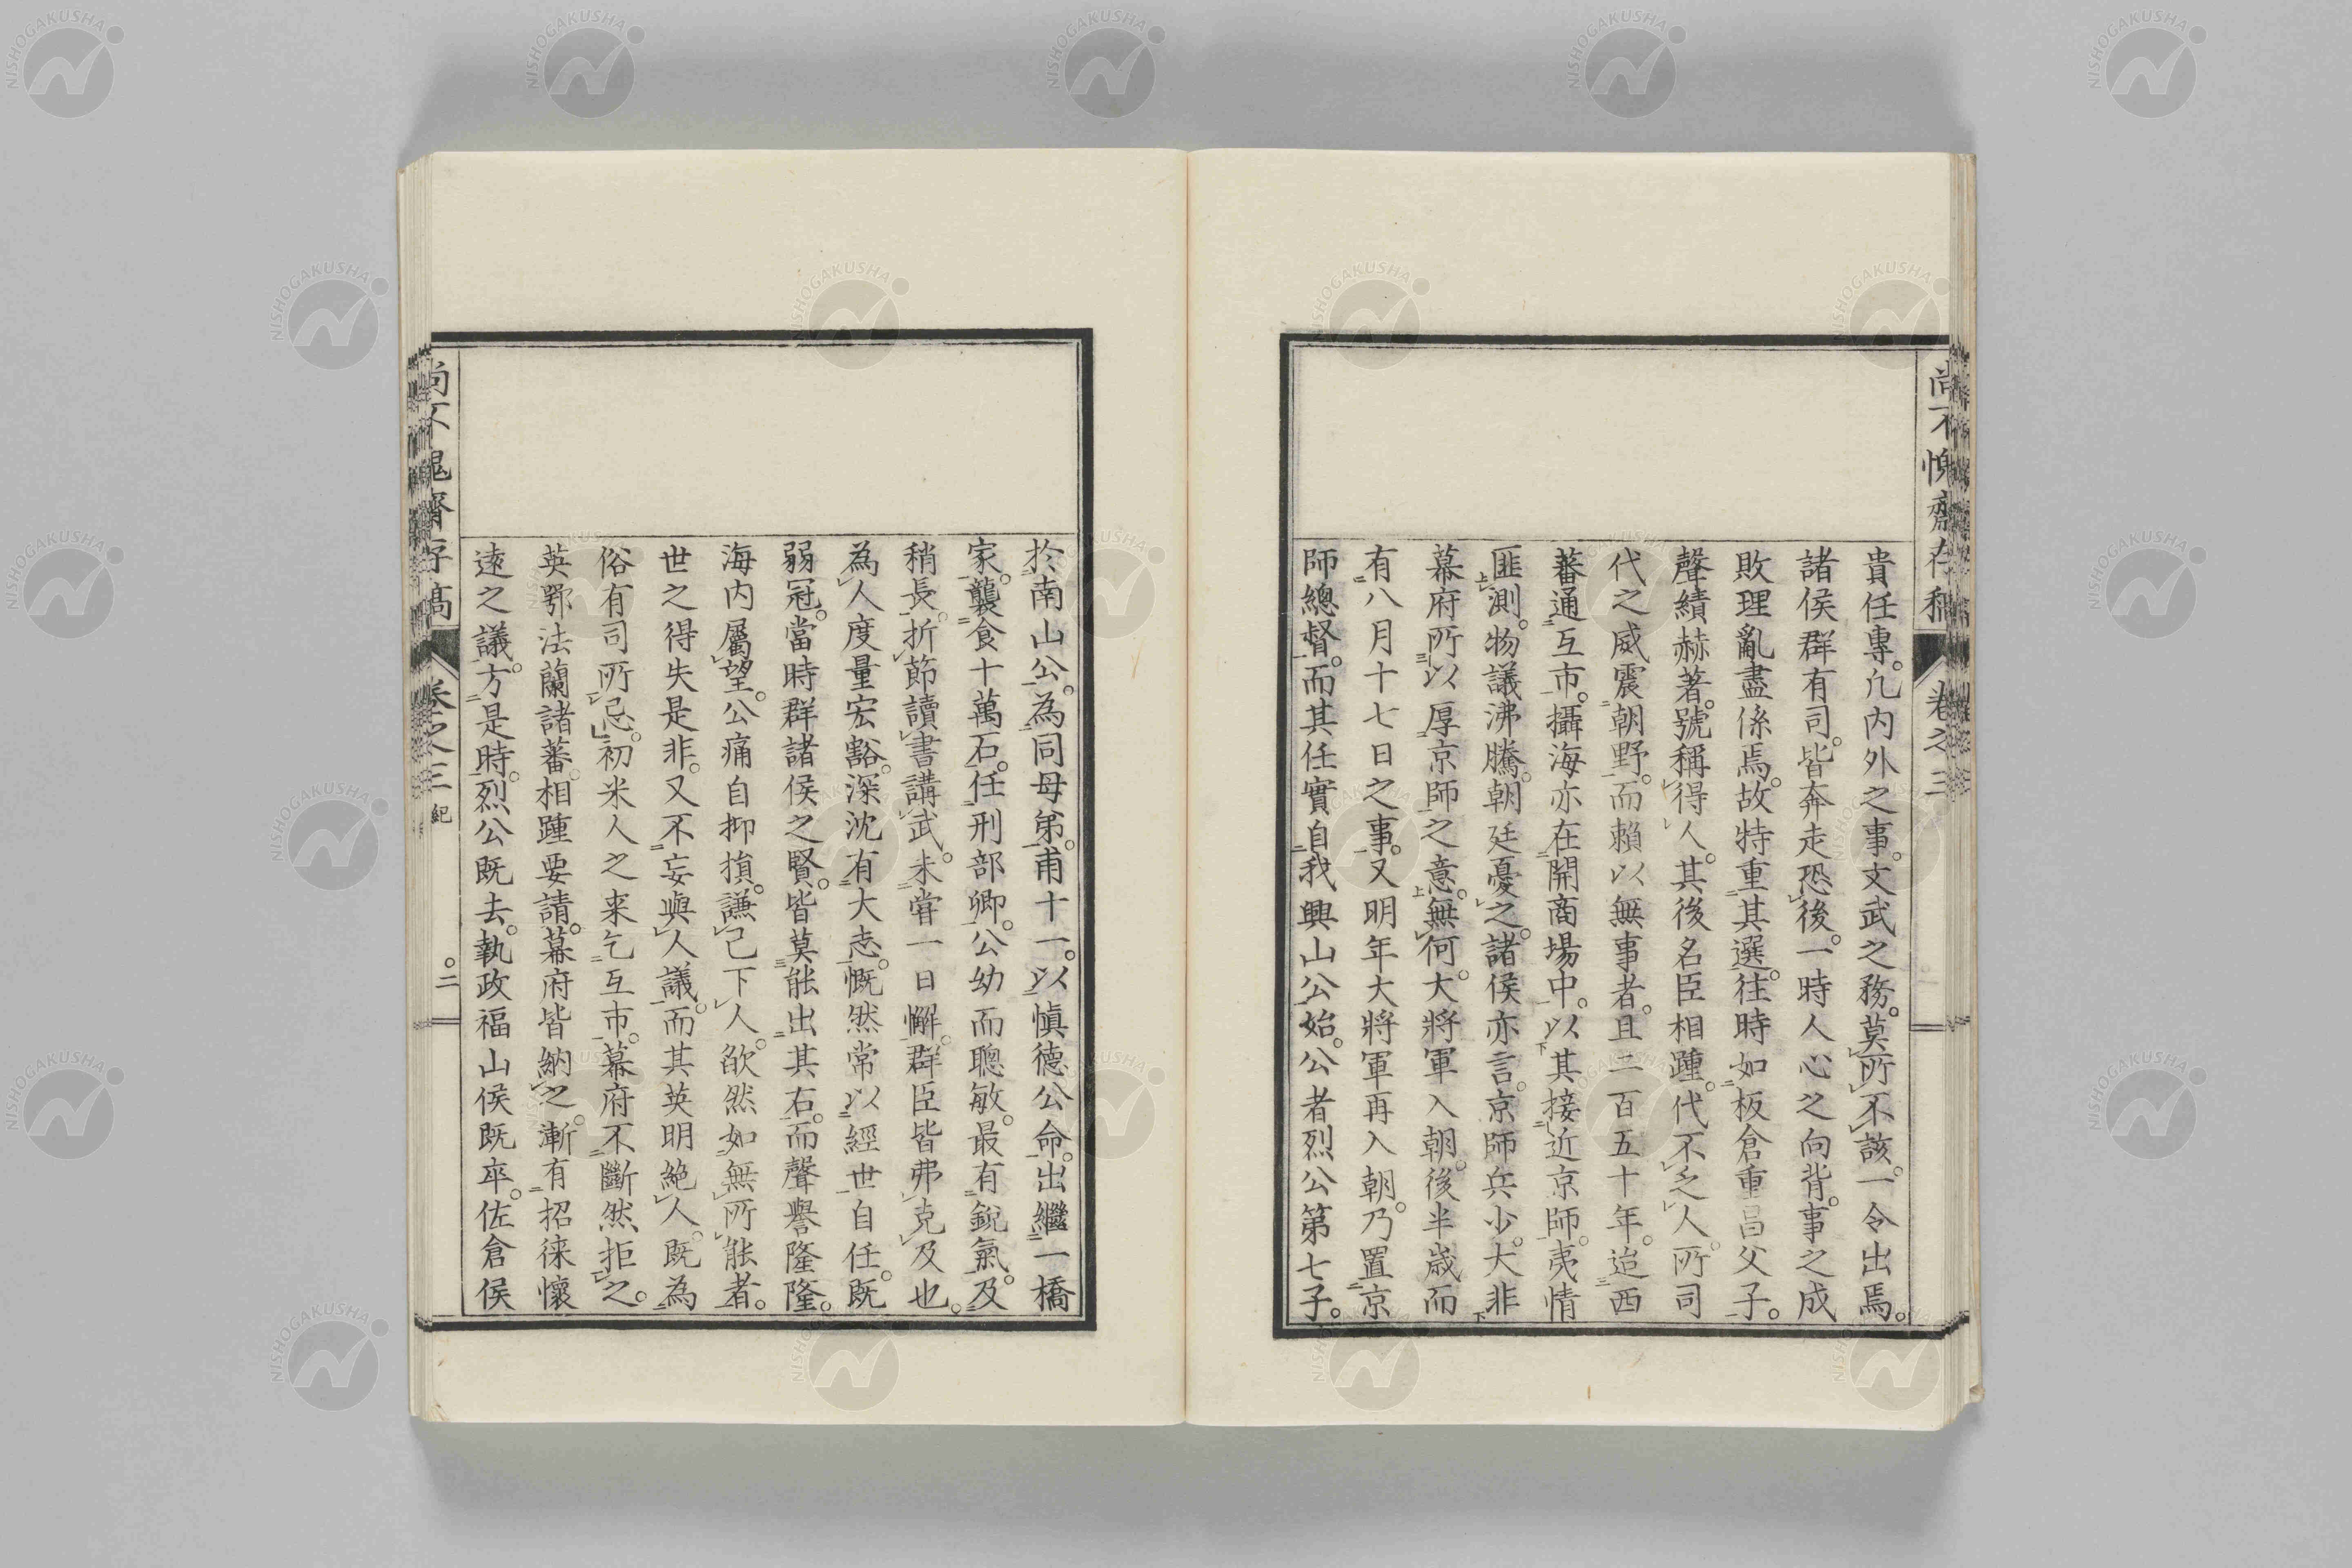 貴任專。凢内外之事。文武之務。莫所不該。一令出焉。
諸侯群有司。皆奔走恐後。一時人心之向背。事之成
敗理亂盡係焉。故特重其選。往時如板倉重昌父子。
聲績赫著。號稱得人。其後名臣相踵。代不乏人。所司
代之威震朝野。而賴以無事者。且二百五十年。迨西
蕃通互市。攝海亦在開商場中。以其接近京師。夷情
匪測。物議沸騰。朝廷憂之。諸侯亦言。京師兵少。大非
幕府所以厚京師之意。無何。大將軍入朝。後半歳而
有八月十七日之事。又明年大將軍再入朝。乃置京
師總督。而其任實自我興山公始。公者烈公第七子。
於南山公。為同母弟。甫十一。以慎德公命。出繼一橋
家。襲食十萬石。任刑部卿。公幼而聰敏。最有銳氣。及
稍長。折節讀書講武。未嘗一日懈。群臣皆弗克及也。
為人度量宏豁。深沈有大志。慨然常以經世自任。既
弱冠。當時群諸侯之賢。皆莫能出其右。而聲譽隆隆。
海内屬望。公痛自抑損。謙己下人。欿然如無所能者。
世之得失是非。又不妄與人議。而其英明絶人。既為
俗有司所忌。初米人之来乞互市。幕府不斷然拒之。
英鄂法蘭諸蕃。相踵要請。幕府皆納之。漸有招徠懷
遠之議。方是時。烈公既去。執政福山侯既卒。佐倉侯
卷之三
紀
二
NISHOGAKUSHA